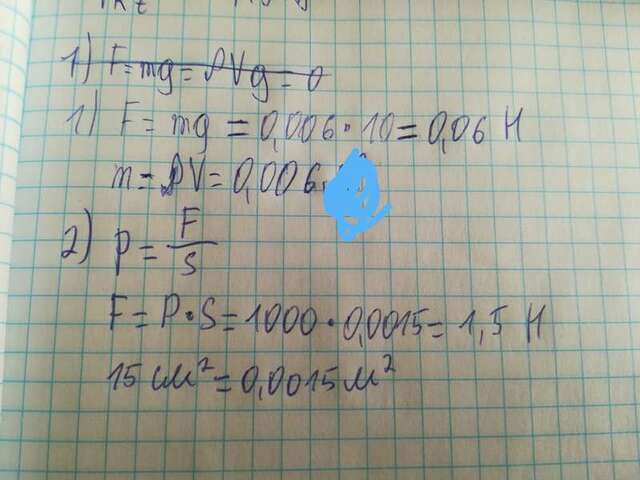 1) F = mg = ρVg = 0
1) F = mg = 0,006 · 10 = 0,06 Н
m = ρV = 0,006
2) p = F/S
F = P · S = 1000 · 0,0015 = 1,5 Н
15 см² = 0,0015 м²